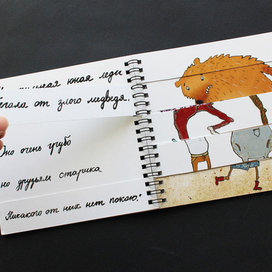 юная леди
бегала от злого медведя.
Оно очень грубо
но друзьям старика
Никакого от них нет покою,"